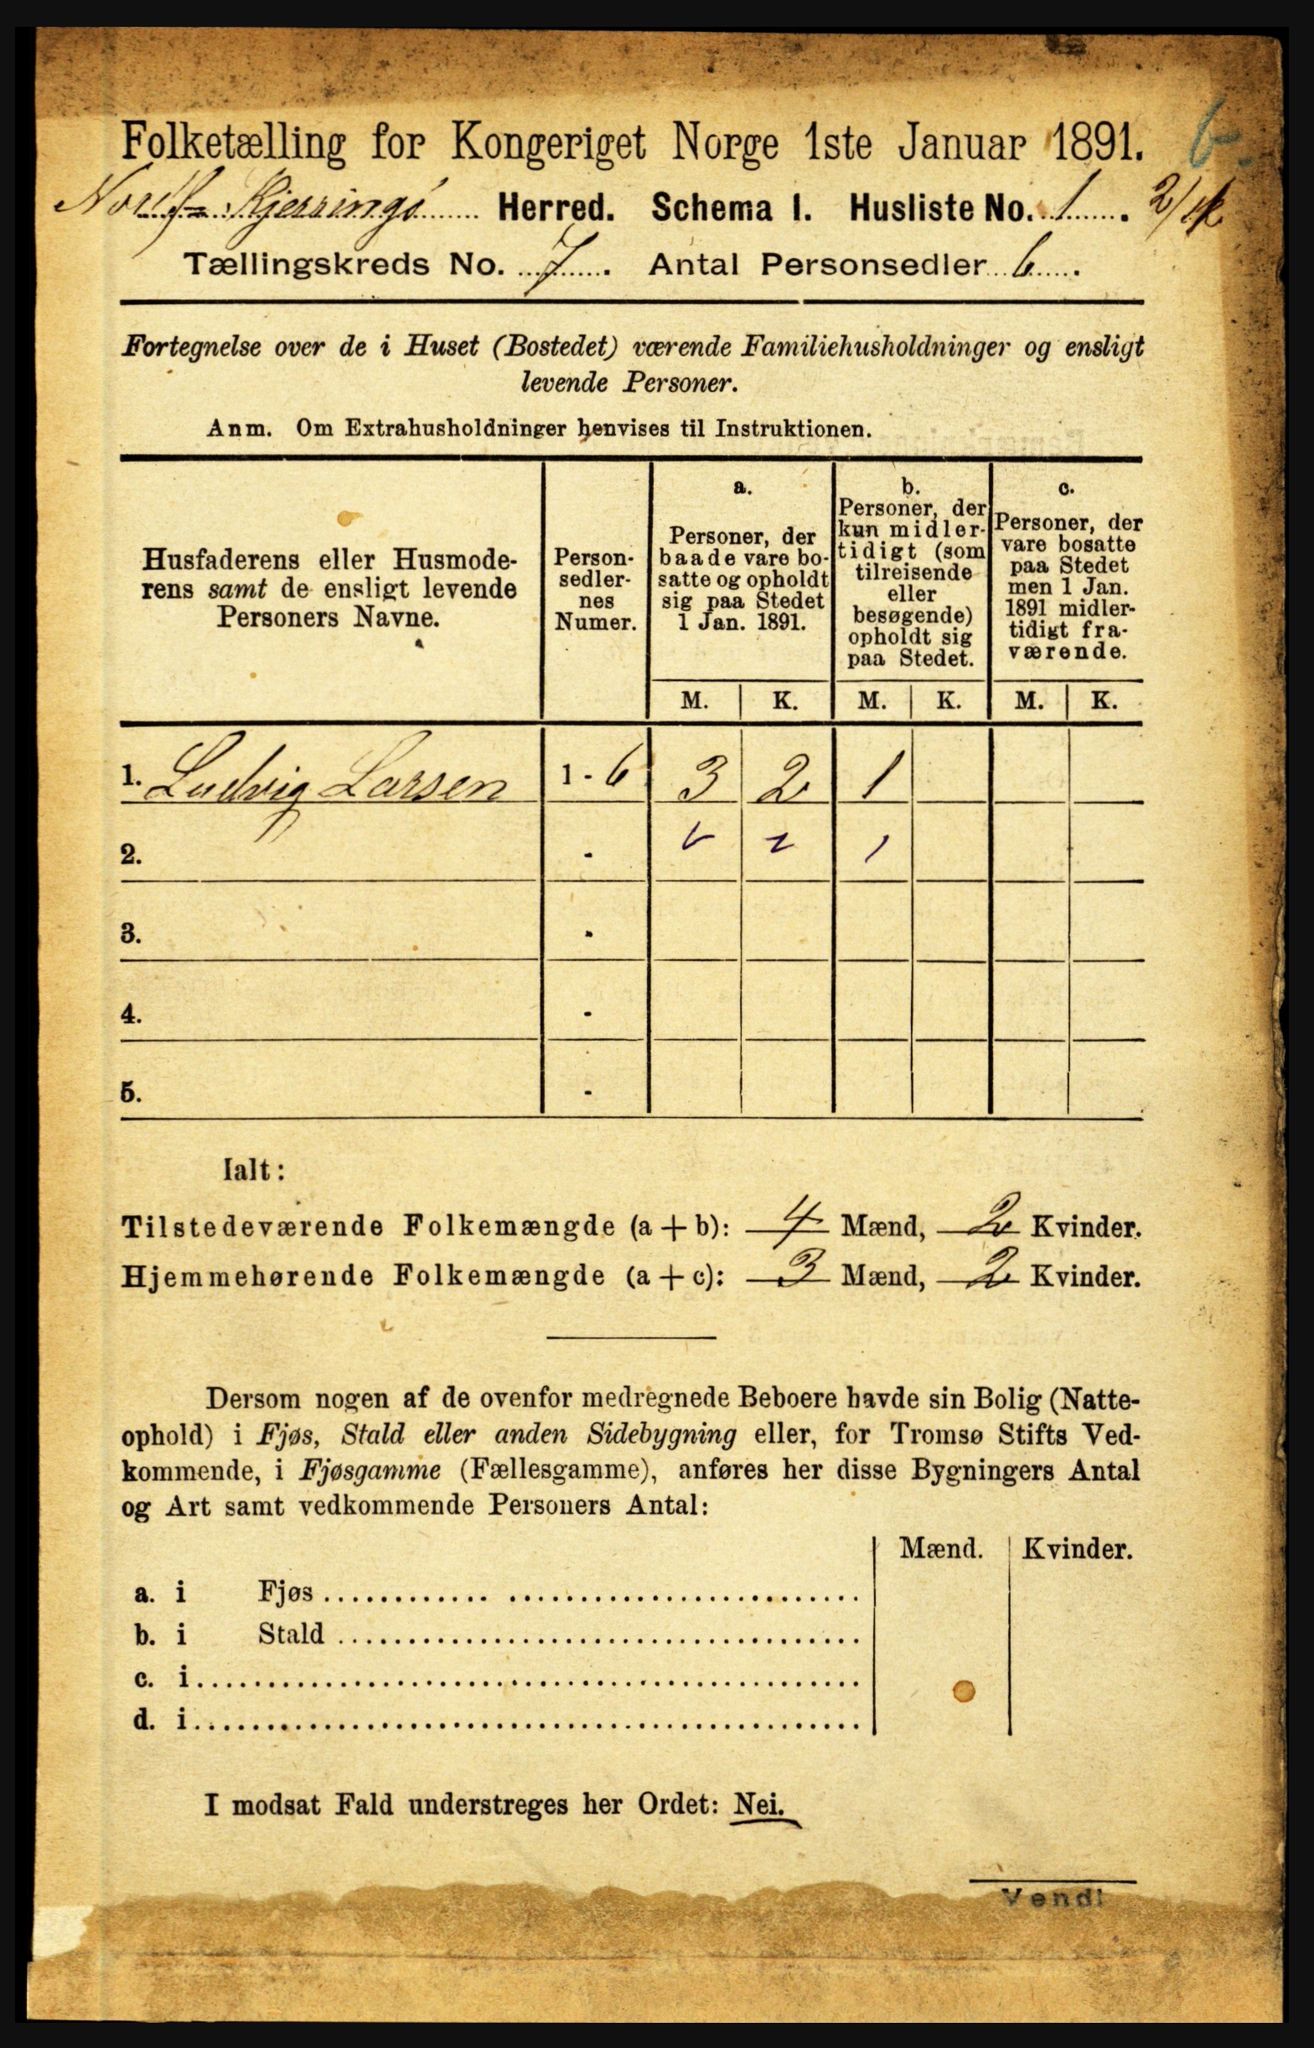 Folketælling for Kongeriget Norge 1ste Januar 1891. 6
Nordf-Kjerringø Herred. Schema I. Husliste No. 1.
Tællingskreds No. 7. Antal Personsedler 6.
Fortegnelse over de i Huset (Bostedet) værende Familiehusholdninger og ensligt
levende Personer.
Anm. Om Extrahusholdninger henvises til Instruktionen.
Husfaderens eller Husmode-
rens samt de ensligt levende
Personers Navne.
Person-
sedler-
nes
Numer.
a.
Personer, der
baade vare bo-
satte og opholdt
sig paa Stedet
1 Jan. 1891.
b.
Personer, der
kun midler-
tidigt (som
tilreisende
eller
besøgende)
opholdt sig
paa Stedet.
c.
Personer, der
vare bosatte
paa Stedet
men 1 Jan.
1891 midler-
tidigt fra-
værende.
M. K. M. K. M. K.
1. Ludvig Larsen 1 - 6 3 2 1
2. - 2 1
3. -
4. -
5. -
Ialt:
Tilstedeværende Folkemængde (a + b): 4 Mænd, 2 Kvinder.
Hjemmehørende Folkemængde (a + c): 3 Mænd, 2 Kvinder.
Dersom nogen af de ovenfor medregnede Beboere havde sin Bolig (Natte-
ophold) i Fjøs, Stald eller anden Sidebygning eller, for Tromsø Stifts Ved-
kommende, i Fjøsgamme (Fællesgamme), anføres her disse Bygningers Antal
og Art samt vedkommende Personers Antal:
Mænd. Kvinder.
a. i Fjøs
b. i Stald
c. i
d. i
I modsat Fald understreges her Ordet: Nei.
Vend!